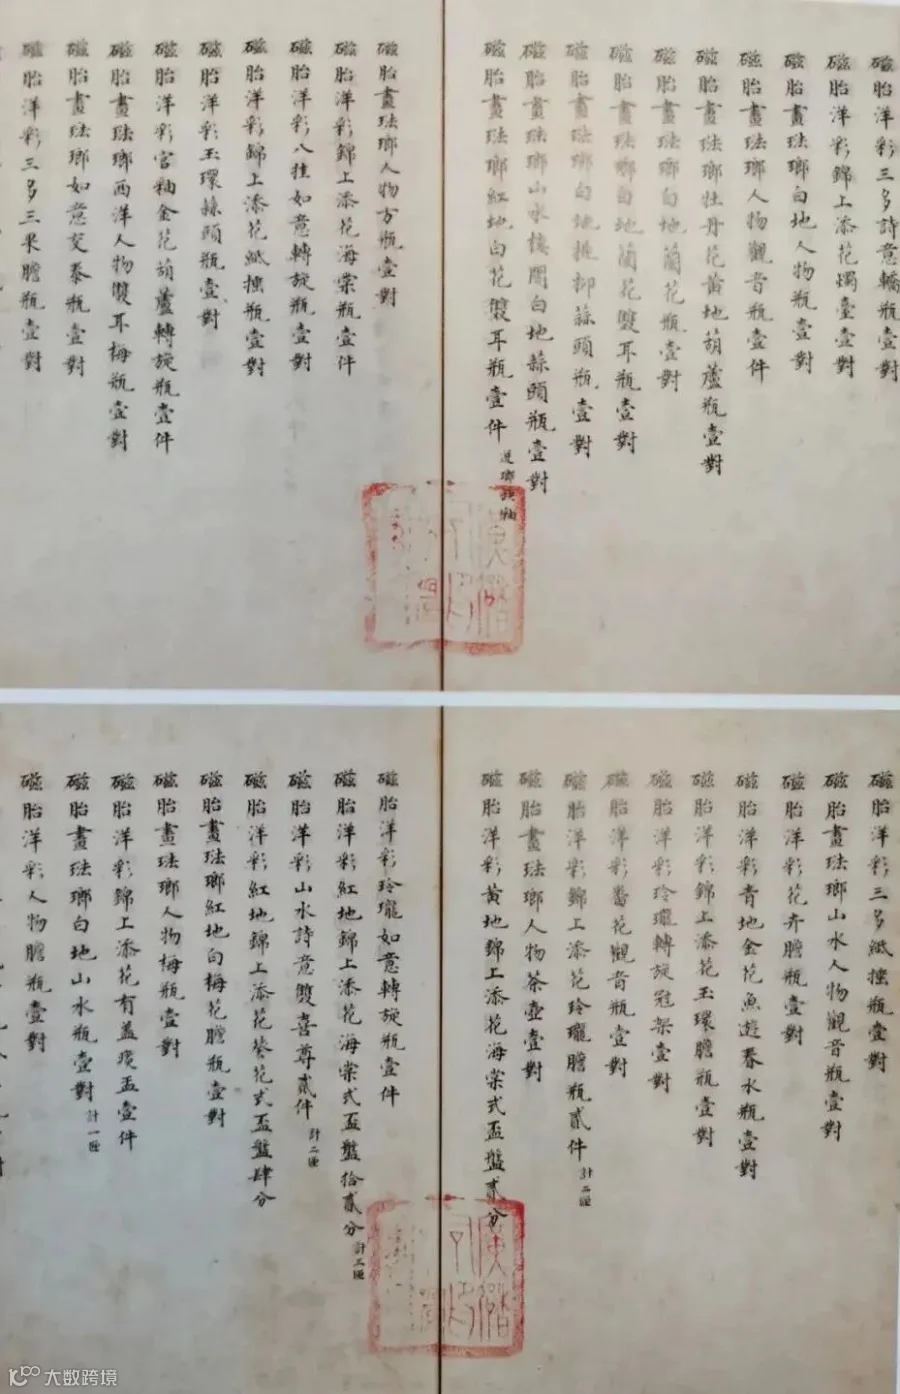 磁胎洋彩三多詩意轎瓶壹對
磁胎洋彩錦上添花燭臺壹對
磁胎畫琺瑯白地人物瓶壹對
磁胎畫琺瑯人物觀音瓶壹件
磁胎畫琺瑯牡丹花黃地葫蘆瓶壹對
磁胎畫琺瑯白地蘭花瓶壹對
磁胎畫琺瑯白地蘭花雙耳瓶壹對
磁胎畫琺瑯白地桃柳蒜頭瓶壹對
磁胎畫琺瑯山水樓閣白地蒜頭瓶壹對
磁胎畫琺瑯紅地白花雙耳瓶壹件
磁胎畫琺瑯人物方瓶壹對
磁胎洋彩錦上添花海棠瓶壹件
磁胎洋彩八卦如意轉旋瓶壹對
磁胎洋彩錦上添花紙搥瓶壹對
磁胎洋彩玉環蒜頭瓶壹對
磁胎洋彩宮釉金花葫蘆轉旋瓶壹件
磁胎畫琺瑯西洋人物雙耳梅瓶壹對
磁胎畫琺瑯如意交泰瓶壹對
磁胎洋彩三多三果膽瓶壹對
磁胎洋彩三多紙搥瓶壹對
磁胎畫琺瑯山水人物觀音瓶壹對
磁胎洋彩花卉膽瓶壹對
磁胎洋彩青地金花魚遊春水瓶壹對
磁胎洋彩錦上添花玉環膽瓶壹對
磁胎洋彩玲瓏轉旋冠架壹對
磁胎洋彩番花觀音瓶壹對
磁胎洋彩錦上添花玲瓏膽瓶貳件 計二匣
磁胎畫琺瑯人物茶壺壹對
磁胎洋彩黃地錦上添花海棠式盃盤貳分
磁胎洋彩玲瓏如意轉旋瓶壹件
磁胎洋彩紅地錦上添花海棠式盃盤拾貳分 計三匣
磁胎洋彩山水詩意雙喜尊貳件 計二匣
磁胎洋彩紅地錦上添花葵花式盃盤肆分
磁胎畫琺瑯紅地白梅花膽瓶壹對
磁胎畫琺瑯人物梅瓶壹對
磁胎洋彩錦上添花有蓋痰盂壹件
磁胎畫琺瑯白地山水瓶壹對 計一匣
磁胎洋彩人物膽瓶壹對
大数跨境